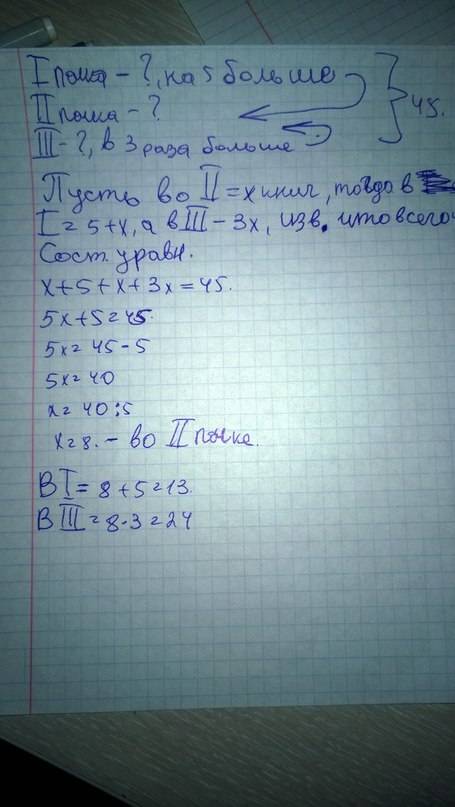 I полка - ?, на 5 больше
II полка - ?
III - ?, в 3 раза больше
45.
Пусть во II = x книг, тогда в
I = 5 + x, а в III - 3x, изв. что всего
Сост. уравн.
x + 5 + x + 3x = 45.
5x + 5 = 45.
5x = 45 - 5
5x = 40
x = 40 : 5
x = 8. - во II полке.
В I = 8 + 5 = 13.
В III = 8 · 3 = 24